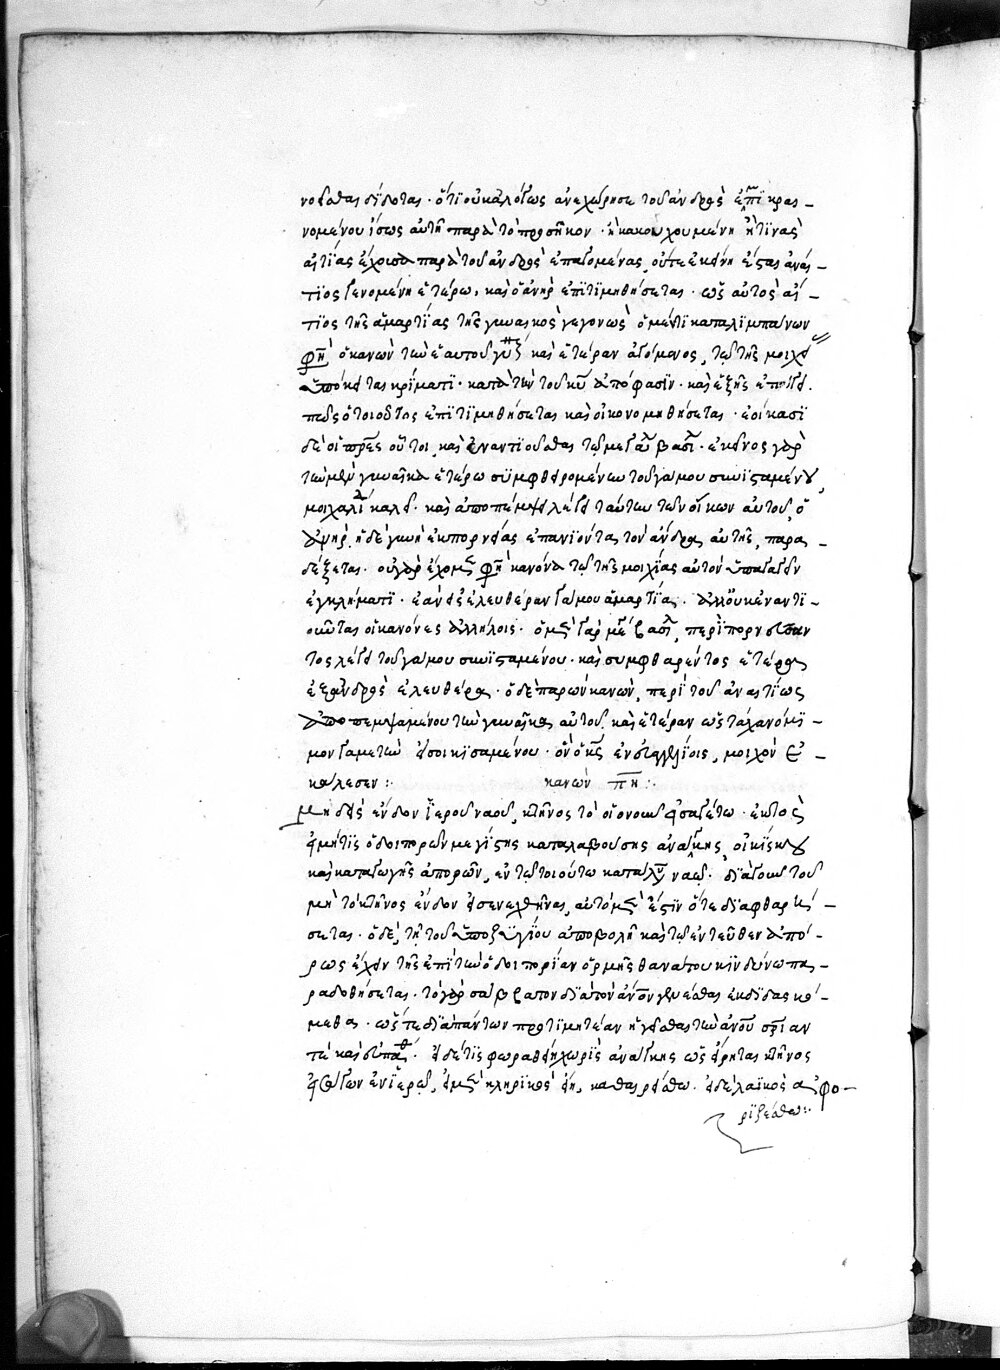 νοεῖσθαι δίδοται · ὅτι οὐκ ἀλόγως ἀνεχώρησε τοῦ ἀνδρὸς ἐπικραι-
νομένου ἴσως αὐτῆ παρὰ τὸ προσῆκον · ἢ κακουχουμένη ἤτινας
αἰτίας ἔχουσα παρὰ τοῦ ἀνδρὸς ἐπαγομένας οὔτε ἐκείνη ἔσται ἀναί-
τιος γενομένη ἑτέρω · καὶ ὁ ἀνὴρ ἐπιτιμηθήσεται · ὡς αὐτὸς αἴ-
τιος τῆς ἁμαρτίας τῆς γυναικὸς γεγονὼς ὁ μέντοι καταλιμπάνων
φησὶ ὁ κανὼν τὴν ἑαυτοῦ γυναῖκα καὶ ἑτέραν ἀγόμενος, τῶ τῆς μοιχεί
ὑπόκειται κρίματι · κατὰ τὴν τοῦ κυ ἀπόφασιν · καὶ ἑξῆς ἐπάγει
πῶς ὁ τοιοῦτος ἐπιτιμηθήσεται καὶ οἰκονομηθήσεται · ἐοίκασι
δὲ οἱ πρες οὗτοι καὶ ἐναντιοῦσθαι τῶ μεγάλω βασι · ἐκεῖνος γὰρ
τὴν μὲν γυναῖκα ἑτέρω συμφθειρομένην τοῦ γάμου συνισταμένου,
μοιχαλίδα καλεῖ · καὶ ἀποπέμψει λέγει ταύτην τῶν οἴκων αὐτοῦ, ὁ
ἀνὴρ ἡ δὲ γυνὴ ἐκ πορνείας ἐπανιόντα τὸν ἄνδρα αὐτῆς, παρα-
δέξεται · οὐ γὰρ ἔχομεν φησὶ κανόνα τῶ τῆς μοιχίας αὐτὸν ὑπαγαγεῖν
ἐγκλήματι · ἐὰν εἰς ἐλευθέραν γάμου ἁμαρτία · ἀλλ' οὐκ ἐναντι-
οῦνται οἱ κανόνες ἀλλήλοις · ὁ μὲν γὰρ μέγας βασι, περὶ πορνεύσαν
τος λέγει τοῦ γάμου συνισταμένου · καὶ συμφθαρέντος ἑτέρα
ἐξ ἀνδρὸς ἐλευθέρα · ὁ δὲ παρὼν κανὼν, περὶ τοῦ ἀναιτίως
ἀποπεμψαμένου τὴν γυναῖκα αὐτοῦ καὶ ἑτέραν ὡς τάχα νόμι-
μον γαμετὴν εἰσοικισαμένου · ὃν ὁ κς ἐν εὐαγγελίοις, μοιχὸν ἐ-
κάλεσεν :· κανὼν πη :·
μηδεὶς ἔνδον ἱεροῦ ναοῦ, κτῆνος τὸ οἱονοῦν εἰσαγέτω · ἐκτὸς
εἰ μήτις ὁδοιπορῶν μεγίστης καταλαβούσης ἀνάγκης, οἰκίσκου
καὶ καταγωγῆς ἀπορῶν, ἐν τῶ τοιούτω καταλύση ναῶ · διὰ γοῦν τοῦ
μὴ τὸ κτῆνος ἔνδον εἰσενεχθῆναι, αὐτὸ μὲν ἔστιν ὅτε διαφθαρή-
σεται · ὁ δὲ, τῆ τοῦ ὑποζυγίου ἀποβολῆ καὶ τῶ ἐντεῦθεν ἀπό-
ρως ἔχειν τῆς ἐπὶ τὴν ὁδοιπορίαν ὁρμῆς θανάτου κινδύνω πα-
ραδοθήσεται · τὸ γὰρ σάββατον διὰ τὸν ἄνον γενέσθαι ἐκδιδασκό-
μεθα · ὥστε διὰ πάντων προτιμητέαν ἡγεῖσθαι τὴν ἀνου σρίαν
τε καὶ ἀπάθ · εἰ δέ τις φωραθείη χωρὶς ἀνάγκης ὡς εἴρηται κτῆνος
εἰσάγων ἐν ἱερῶ, εἰ μὲν κληρικὸς εἴη, καθαιρείσθω · εἰ δὲ λαϊκὸς ἀφο-
ριζέσθω :·